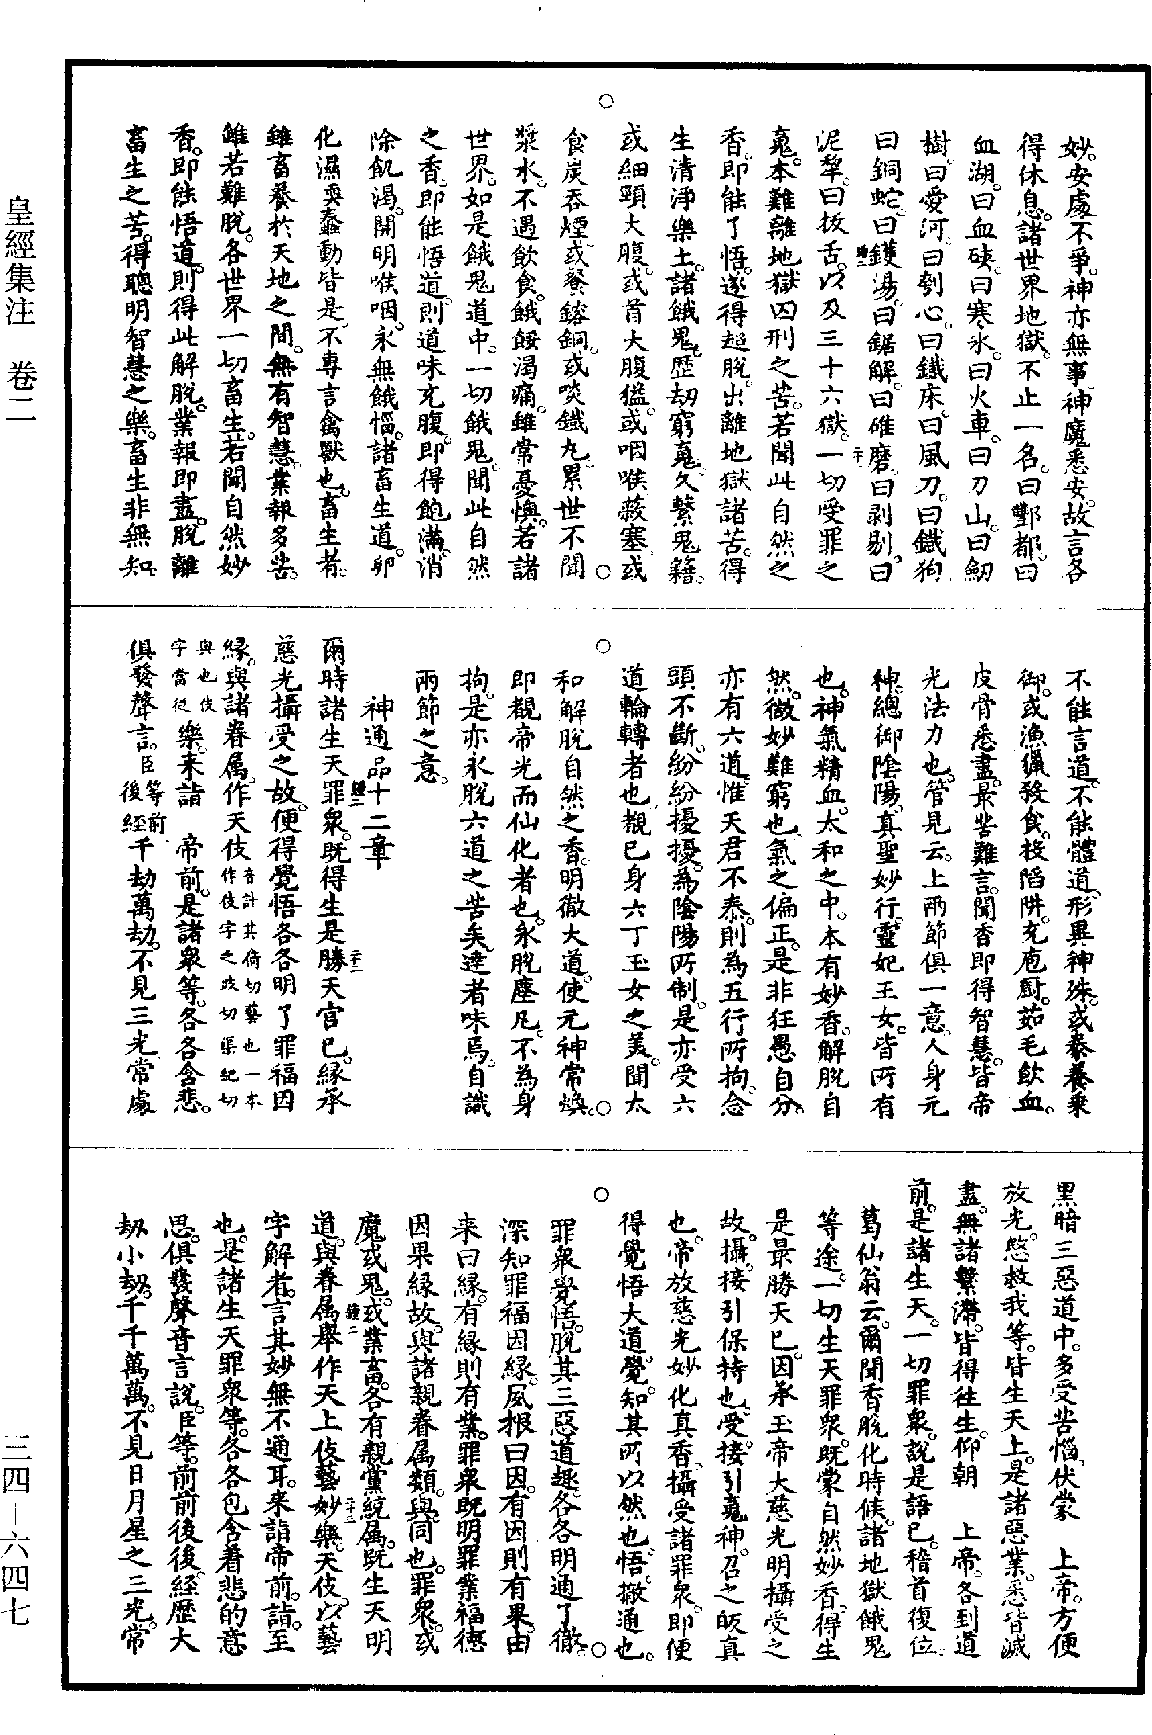 皇經集注　卷二
妙。安處不爭。神亦無事。神魔悉安。故言各
得休息。諸世界地獄。不止一名。曰酆都。曰
血湖。曰血磺。曰寒氷。曰火車。曰刀山。曰劒
樹。曰愛河。曰刳心。曰鐵床。曰風刀。曰鐵狗。
曰銅蛇。曰鑊湯。曰鋸解。曰碓磨。曰剥剔。曰
泥犂。曰拔舌。以及三十六獄。一切受罪之
䰟。本難離地獄囚刑之苦。若聞此自然之
香。即能了悟。遂得超脫。出離地獄諸苦。得
生清淨樂土。諸餓鬼。歷劫窮䰟。久繫鬼籍。
或細頸大腹。或首大腹猛。或咽喉蔽塞。或
○
食炭吞煙。或餐鎔銅。或啖鐵丸。累世不聞
漿水。不遇飲食。餓餒渴痛。雖常憂惱。若諸
世界。如是餓鬼道中。一切餓鬼。聞此自然
之香。即能悟道。則道味充腹。即得飽滿。消
除飢渴。開明喉咽。永無餓惱。諸畜生道。卵
化濕耎蠢動皆是。不專言禽獸也。畜生者。
雖畜養於天地之間。無有智慧。業報多苦。
雖若難脫。各世界一切畜生。若聞自然妙
香。即能悟道。則得此解脫。業報即盡。脫離
畜生之苦。得聰明智慧之樂。畜生非無知。
不能言道。不能體道。形異神殊。或豢養乘
御。或漁獵發食。投陷阱。充庖厨。茹毛飲血。
皮骨悉盡。最苦難言。聞香即得智慧。皆帝
光法力也。管見云。上兩節俱一意。人身元
神。總御陰陽。真聖妙行。靈妃玉女。皆所有
也。神氣精血。太和之中。本有妙香。解脫自
然。微妙難窮也。氣之偏正。是非狂愚自分。
亦有六道。惟天君不泰。則為五行所拘。念
頭不斷。紛紛擾擾。為陰陽所制。是亦受六
道輪轉者也。覩已身六丁玉女之美。聞太
○
和解脫自然之香。明徹大道。使元神常煥。
即覩帝光而仙化者也。永脫塵凡。不為身
拘。是亦永脫六道之苦矣。達者味焉。自識
兩節之意。
神通品十二章
爾時諸生天罪衆。既得生是勝天宫已。緣承
慈光攝受之故。便得覺悟。各各明了罪福因
緣。與諸眷属。作天伎音計其倚切藝也一本作伎字之或切渠紀切
與也伎字當從樂。来詣　帝前。是諸衆等。各各含悲。
俱發聲言。臣等前後經千劫萬劫。不見三光。常處
黑暗三惡道中。多受苦惱。伏蒙　上帝。方便
放光。愍救我等。皆生天上。是諸惡業。悉皆滅
盡。無諸繫滯。皆得往生。仰朝　上帝。各到道
前。是諸生天。一切罪衆。說是語已。稽首復位。
葛仙翁云。爾聞香脫化時候。諸地獄餓鬼
等途。一切生天罪衆。既蒙自然妙香。得生
是最勝天已。因承玉帝大慈光明攝受之
故。攝。接引保持也。受。接引䰟神。召之皈真
也。帝放慈光妙化真香。攝受諸罪衆。即便
得覺悟大道。覺。知其所以然也。悟。撤通也。
○
罪衆覺悟。脫其三惡道趣。各各明通了徹。
深知罪福因緣。夙根曰因。有因則有果。由
来曰緣。有緣則有業。罪衆既明罪業福德
因果緣故。與諸親眷属類。與。同也。罪衆。或
魔或鬼。或業畜。各有親黨統属。既生天明
道。與眷属舉作天上伎藝妙樂。天伎。以藝
字解者。言其妙無不通耳。来詣帝前。詣。至
也。是諸生天罪衆等。各各包含着悲的意
思。俱發聲音言說。臣等。前前後後。經歷大
劫小劫。千千萬萬。不見日月星之三光。常
三四—六四七